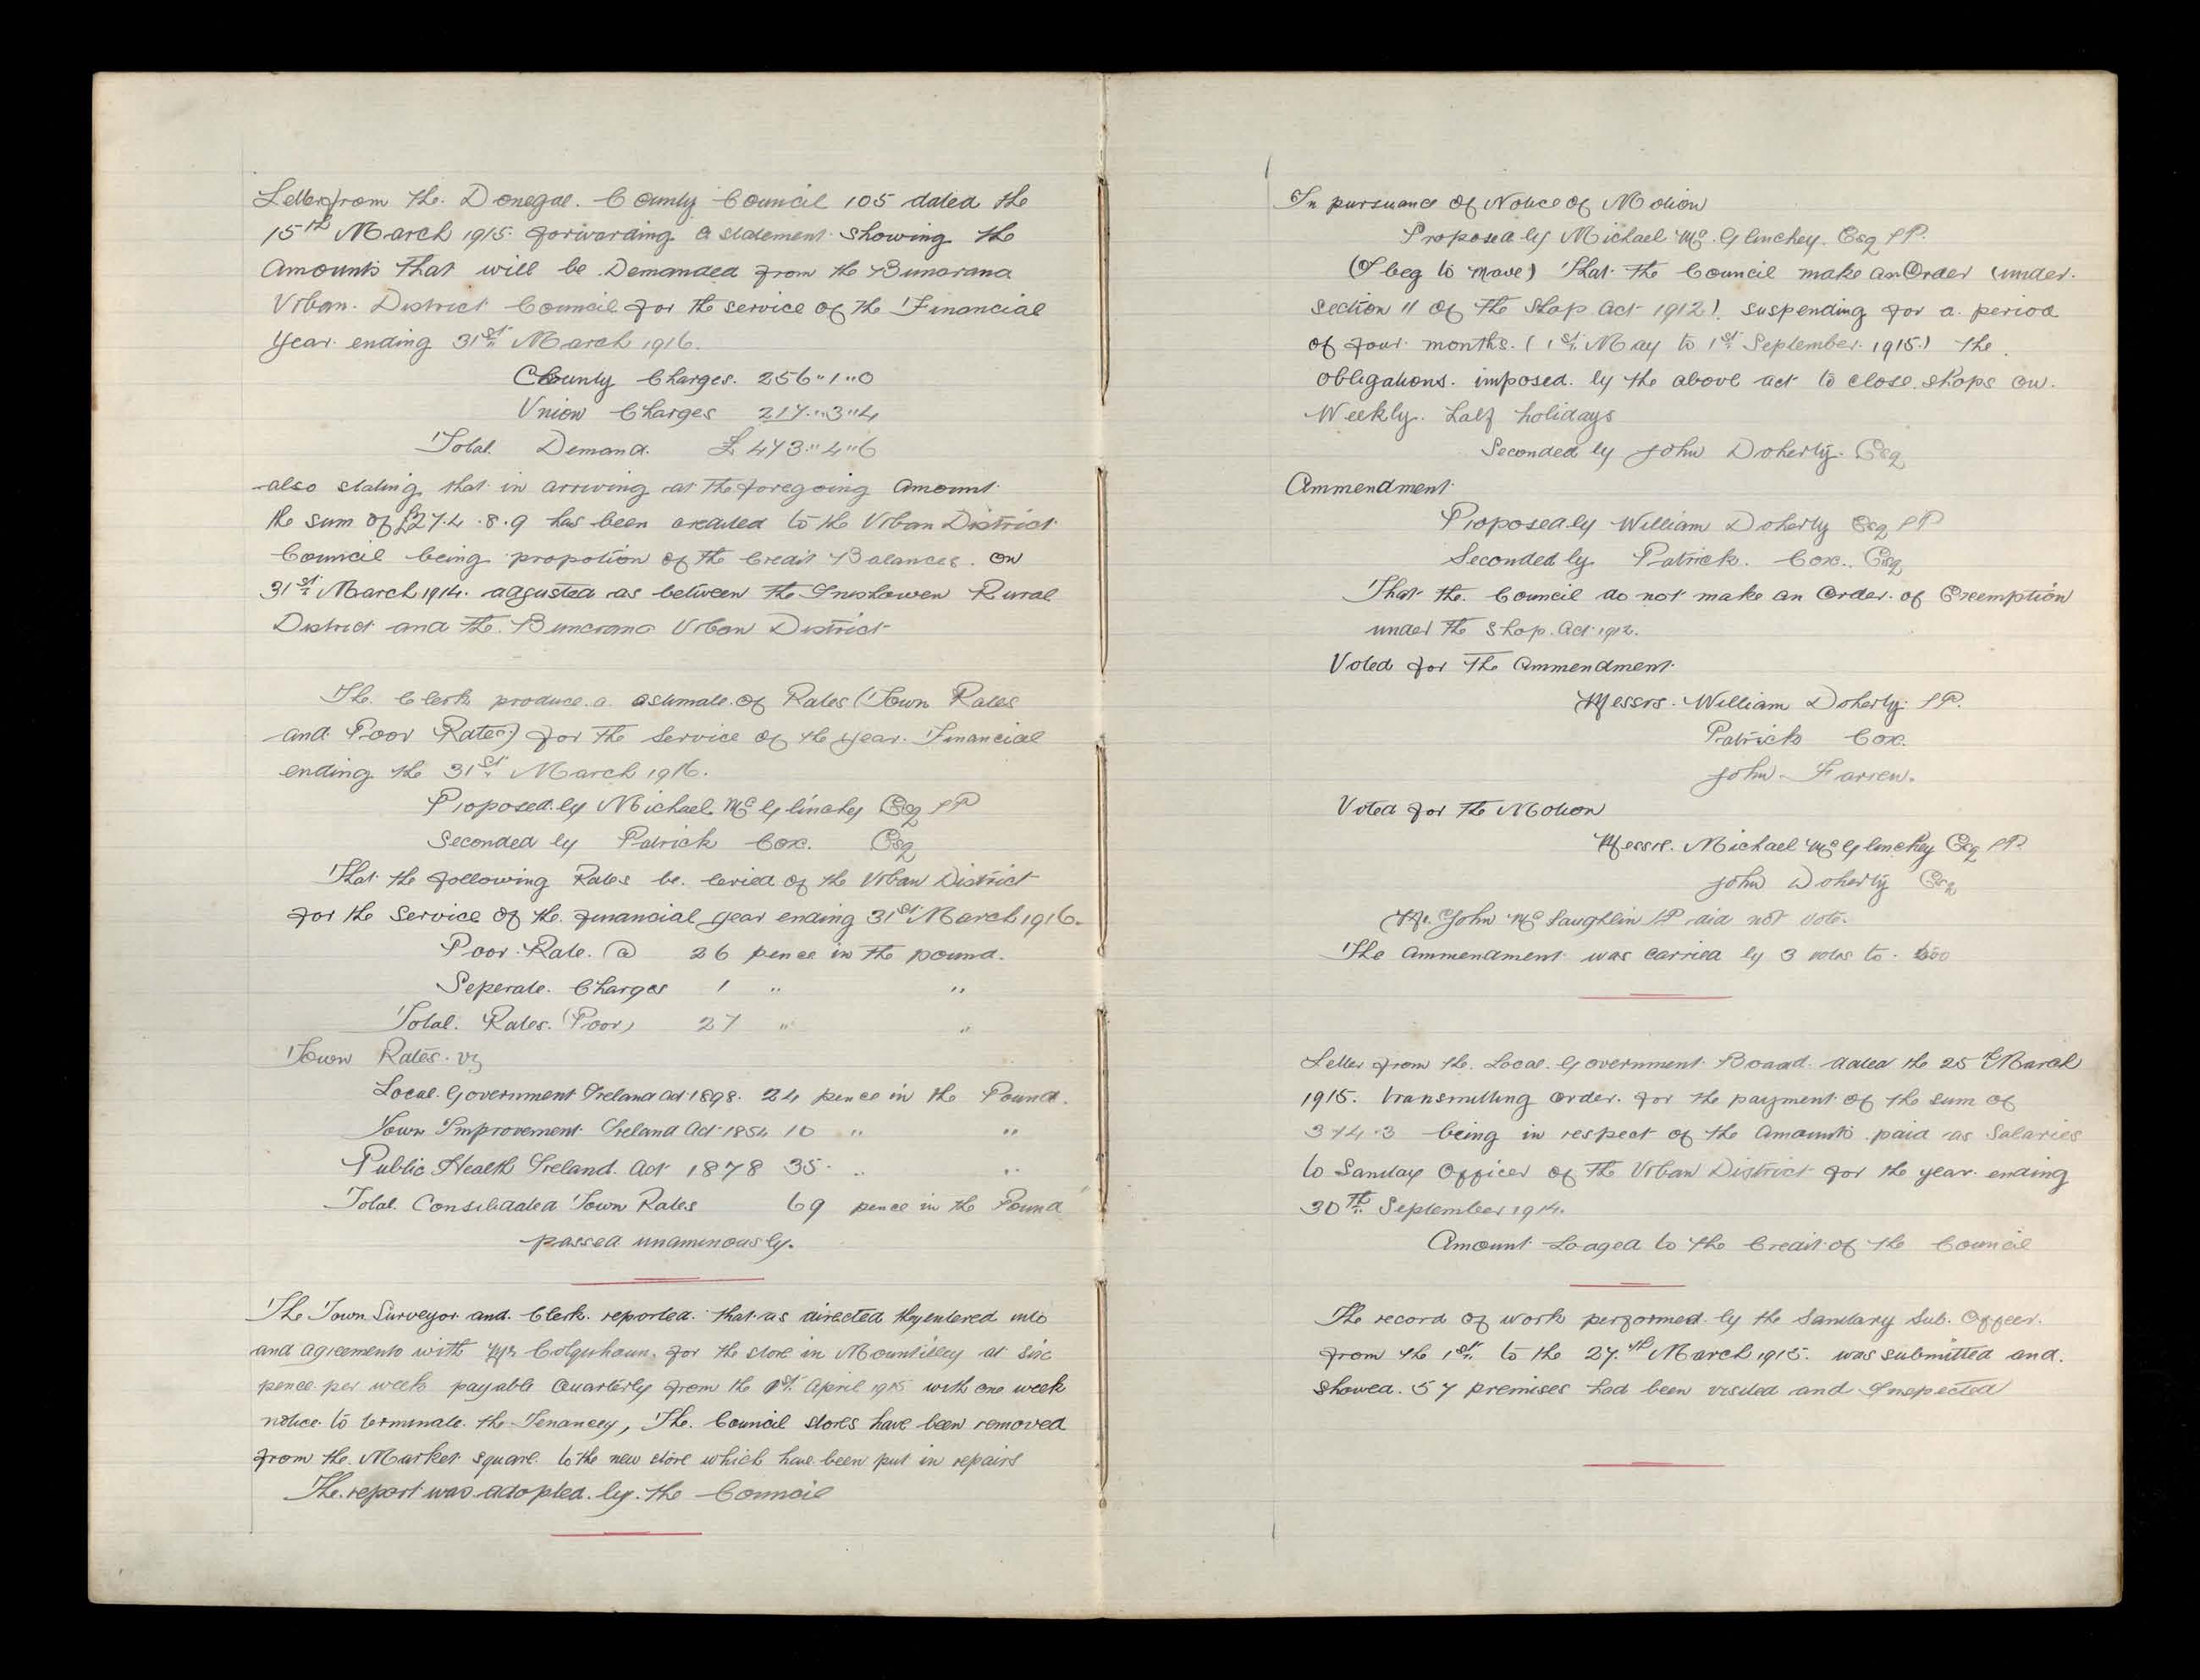 Letter from the Donegal County Council 105 dated the
15th March 1915 forwarding a statement showing the
amounts that will be Demanded from the Buncrana
Urban District Council for the service of the Financial
year ending 31st March 1916.
County Charges. 256"1"0
Union Charges 217"3"4
Total Demand. £473"4"6
also stating that in arriving at the foregoing amount
the sum of £274.8.9 has been credited to the Urban District
Council being propotion of the Credit Balances on
31st March 1914. adjusted as between the Inishowen Rural
District and the Buncrana Urban District
The Clerk produce a estimate of Rates (Town Rates
and Poor Rates) for the service of the year Financial
ending the 31st March 1916.
Proposed by Michael McGlinchey Esq JP
Seconded by Patrick Cox. Esq
That the following Rates be levied of the Urban District
for the service of the financial year ending 31st March 1916.
Poor Rate. @ 26 pence in the pound.
Seperate Charges 1 " "
Total. Rates. (Poor) 27 " "
Town Rates. viz
Local Government Ireland act 1898. 24 pence in the Pound.
Town Improvement Ireland Act 1854 10 " "
Public Health Ireland Act 1878 35 " "
Total Consiladated Town Rates 69 pence in the Pound
passed unaminously.
The Town Surveyor and Clerk reported that as directed they entered into
and agreements with Colquhoun, for the store in Mountilley at six
pence per week payable Quarterly from the 1st April 1915 with one week
notice to terminate the Tenancy, The Council stores have been removed
from the Market square to the new store which have been put in repairs
The report was adopted by the Council
In pursuance of Notice of Motion
Proposed by Michael McGlinchey. Esq JP.
(I beg to move) That the Council make an Order (under
section 11 of the Shop Act 1912). suspending for a period
of four months. (1st May to 1st September 1915.) the
obligations imposed by the above act to close shops on
Weekly half holidays
Seconded by John Doherty. Esq
Ammendment
Proposed by William Doherty Esq JP
Seconded by Patrick. Cox. Esq
That the Council do not make an Order of Exemption
under the Shop Act 1912.
Voted for the Ammendment
Messrs. William Doherty JP.
Patrick Cox.
John Farren.
Voted for the Motion
Messrs. Michael McGlinchey Esq JP.
John Doherty Esq
Mr. John McLaughlin JP did not vote.
The Ammendment was carried by 3 votes to two
Letter from the Local Government Board dated the 25th March
1915. transmitting order for the payment of the sum of
374.3 being in respect of the Amounts paid as Salaries
to Sanitay Officer of the Urban District for the year ending
30th September 1914.
Amount Lodged to the Credit of the Council
The record of work performed by the Sanitary Sub. Officer.
from the 1st to the 27th March 1915. was submitted and
showed 57 premises had been visited and Inspected